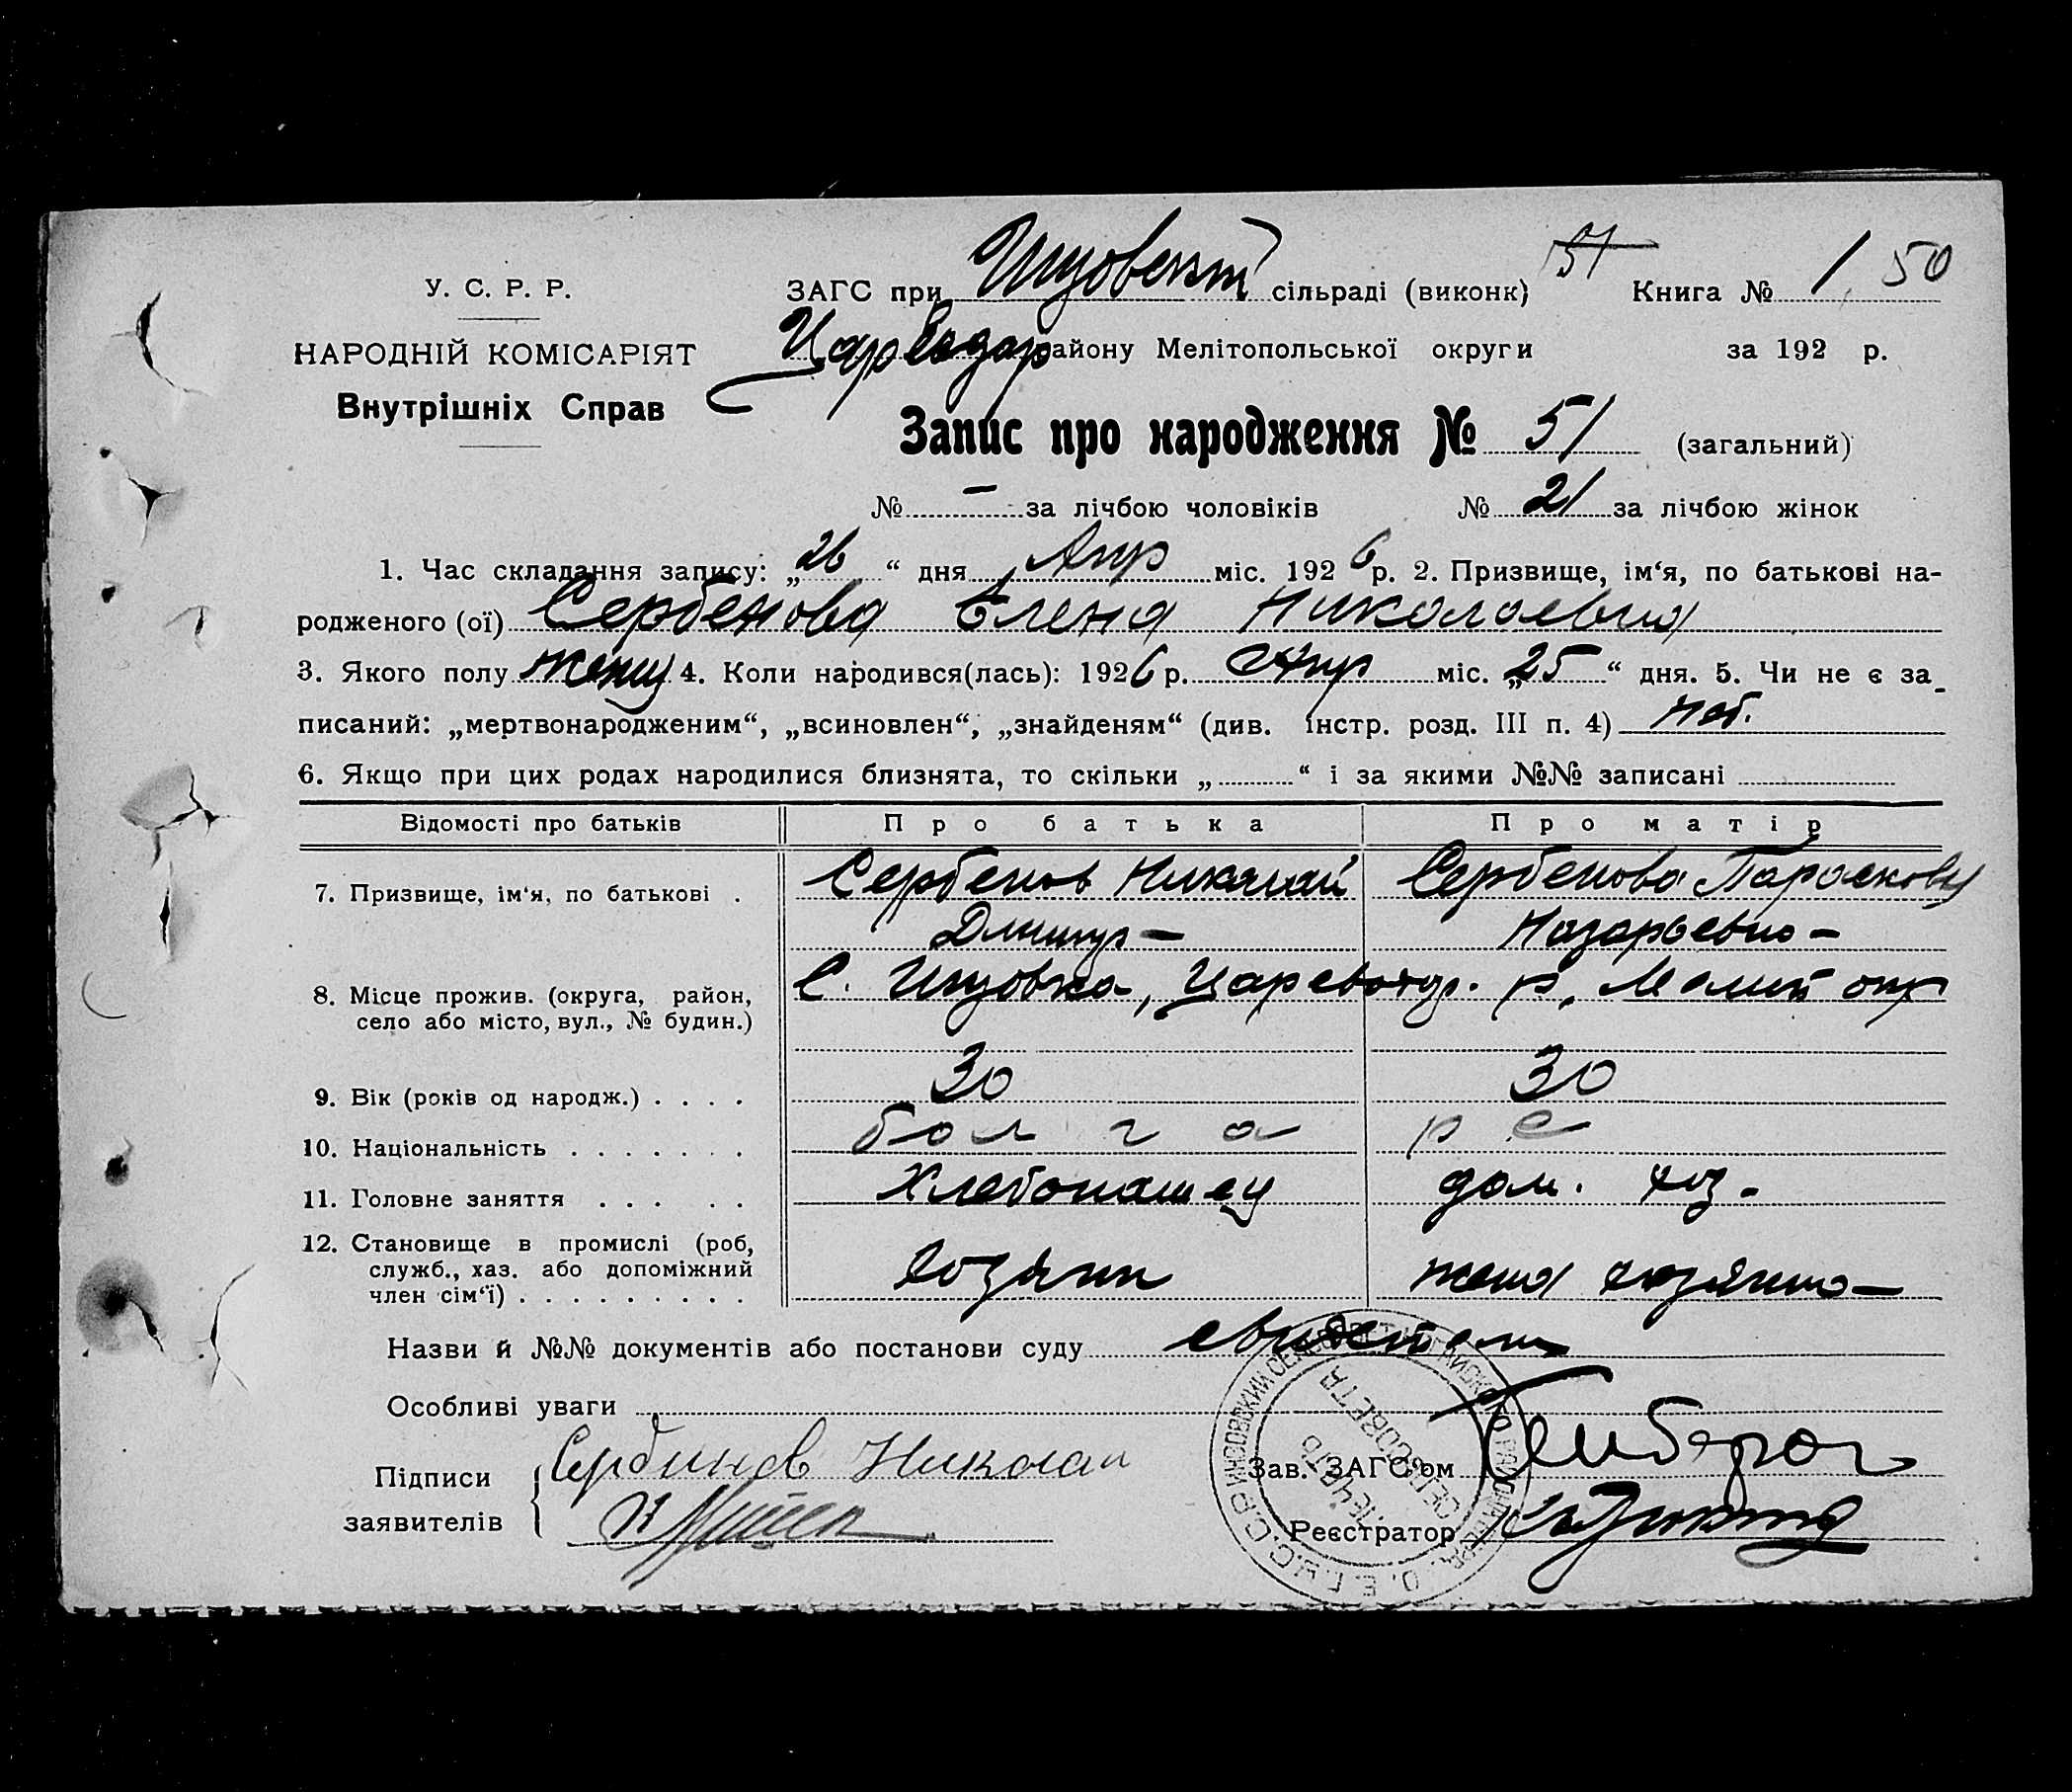 У. С. Р. Р.
НАРОДНІЙ КОМІСАРІЯТ
Внутрішніх Справ
ЗАГС при сільраді (виконк) 51 Книга № 1, 50
району Мелітопольської округи за 192 р.
Запис про народження № 51 (загальний)
№ – за лічбою чоловіків № 21 за лічбою жінок
1. Час складання запису: „26“ дня Апр міс. 1926 р. 2. Призвище, ім‘я, по батькові на-
родженого (ої) Сербенова Елена Николаевна
3. Якого полу женщ 4. Коли народився(лась): 1926 р. Апр міс. „25“ дня. 5. Чи не є за-
писаний: „мертвонародженим“, „всиновлен“, „знайденям“ (див. інстр. розд. III п. 4)
6. Якщо при цих родах народилися близнята, то скільки „ “ і за якими №№ записані
Відомості про батьків Про батька Про матір
7. Призвище, ім‘я, по батькові . Сербенов Николай Сербенова
Дмитр – Назарьевна –
8. Місце прожив. (округа, район, село або місто, вул., № будин.) С. Царевотдр. р, Мелит окр
9. Вік (років од народж.) . . . . 30 30
10. Національність . . . . . . . болгаре
11. Головне заняття . . . . . Хлебопашец дом. хоз.
12. Становище в промислі (роб, служб., хаз. або допоміжний член сім‘ї) . . . . . . . . . хозяин жена хозяина –
Назви й №№ документів або постанови суду
Особливі уваги
Підписи заявителів Сербинов Николай
Зав. ЗАГС‘ом
Реєстратор
ПЕЧАТЬ СЕЛЬСОВЕТА